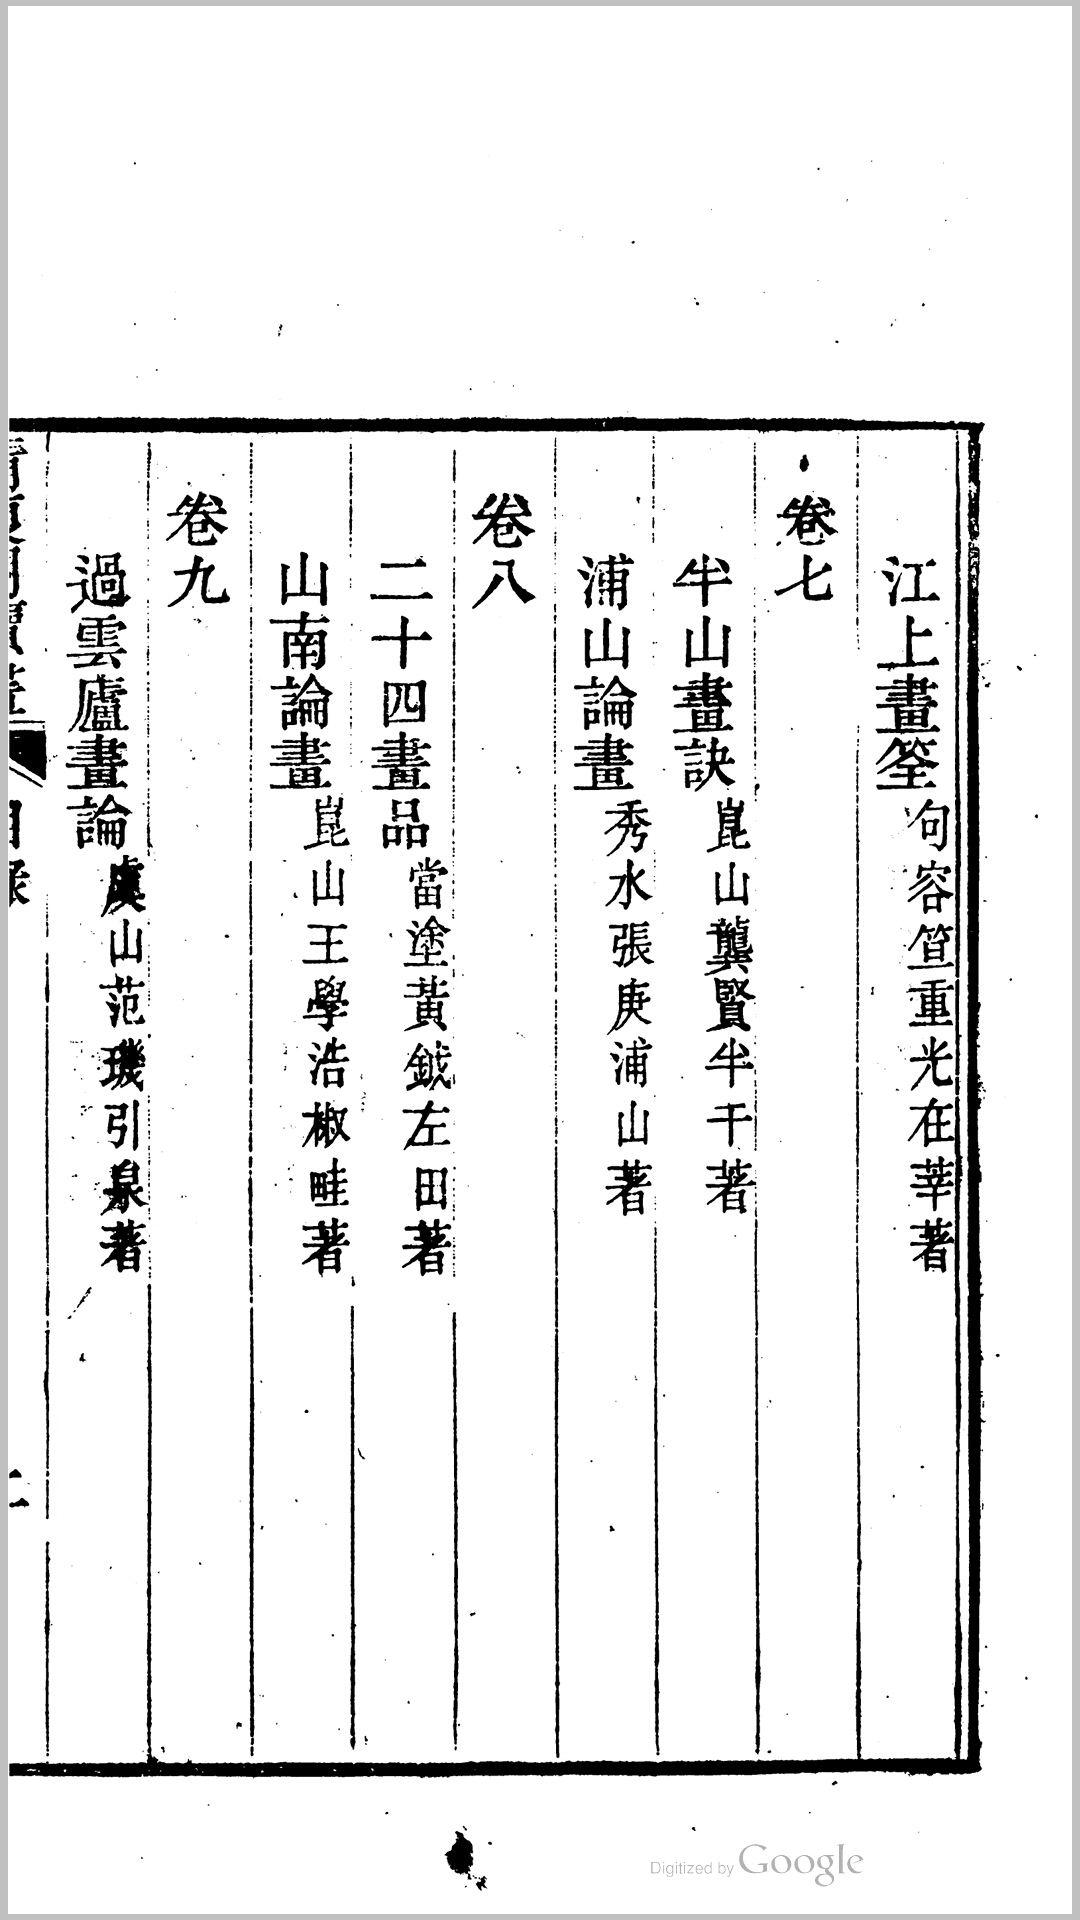 江上畫筌 句容笪重光在莘著
卷七
半山畫訣 崑山龔賢半干著
浦山論畫 秀水張庚浦山著
卷八
二十四畫品 當塗黃鉞左田著
山南論畫 崑山王學浩椒畦著
卷九
過雲廬畫論 虞山范璣引泉著
目錄
Digitized by Google